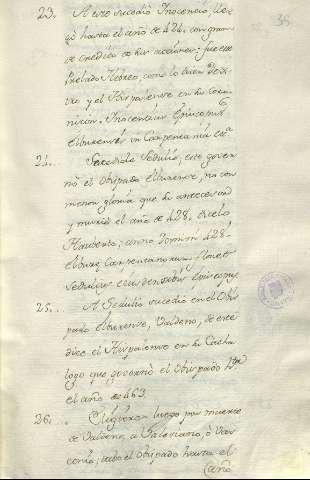 35
23. A este sucedio Inocencio, lle-
gó hasta el año de 424, con gran
credito de sus acciones: fue este
Prelado Hebreo, como lo dicen Dex-
tro y el Hispalense en su Cro-
nicon. Inocencius Episcopus
Elburensis in Carpetania &.ª
24. Succediole Sedulio, este gover-
nó el Obispado Elburense, no con
menor gloria que su antecesor
y murió el año de 428. dicelo
Hauberto; anno Domini 428-
Elburæ Carpetanorum floret
Sedulius ejusdem sedis Episcopus
25. A Sedulio sucedio en el Obis-
pado Elburense, Valdeno, de este
dice el Hispalense en su Catha-
logo que governó el Obispado h.ta
el año de 463.
26. Eligieron luego por muerte
de Valdeno, a Valeriano, ò Vale-
tubo el Obispado hasta el
año